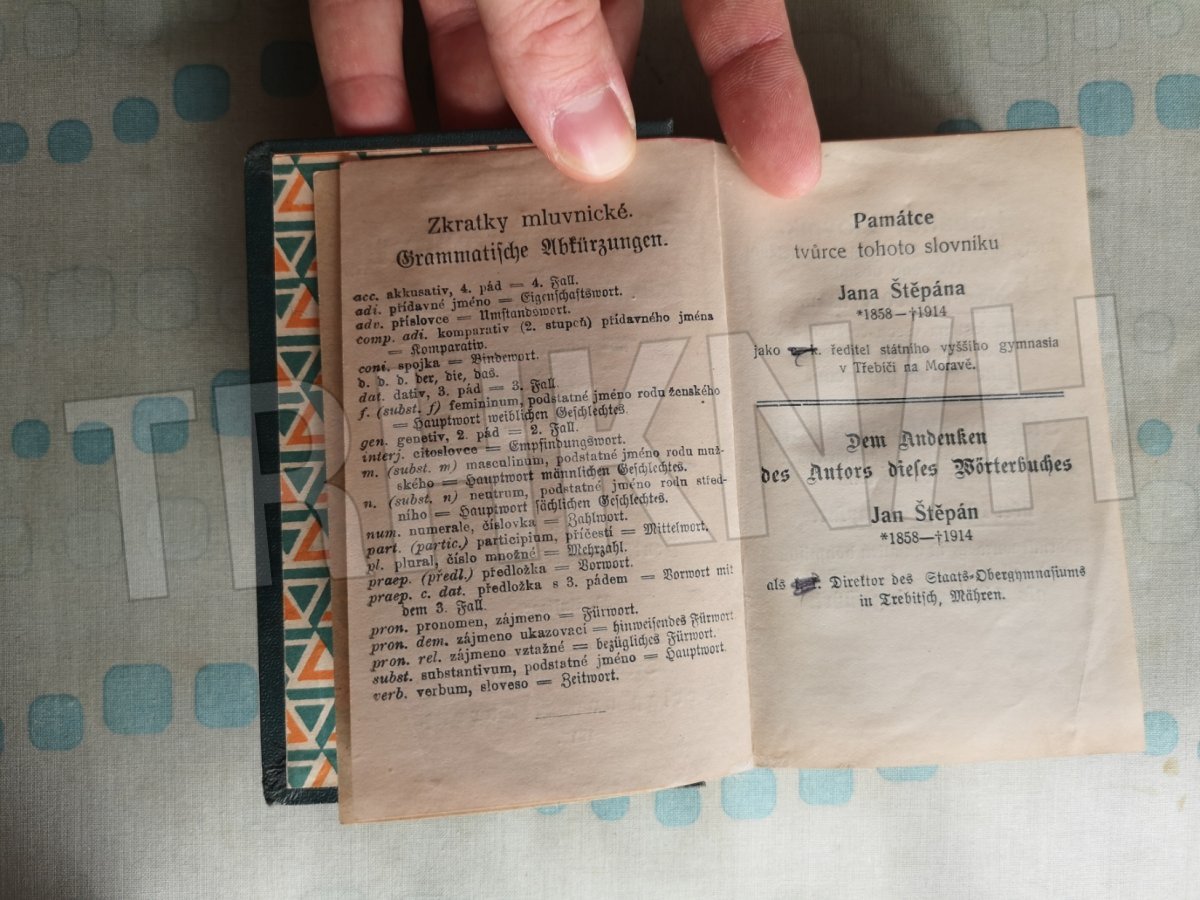 Zkratky mluvnické.
Grammatische Abkürzungen.
acc. akkusativ, 4. pád = 4. Fall.
adi. přídavné jméno = Eigenschaftswort.
adv. příslovce = Umstandswort.
comp. adi. komparativ (2. stupeň) přídavného jména
= Komparativ.
coni. spojka = Bindewort.
d. d. d. der, die, das.
dat. dativ, 3. pád = 3. Fall.
f. (subst. f) femininum, podstatné jméno rodu ženského
= Hauptwort weiblichen Geschlechtes.
gen. genetiv, 2. pád = 2. Fall.
interj. citoslovce = Empfindungswort.
m. (subst. m) masculinum, podstatné jméno rodu muž-
ského = Hauptwort männlichen Geschlechtes.
n. (subst. n) neutrum, podstatné jméno rodu střed-
ního = Hauptwort sächlichen Geschlechtes.
num. numerale, číslovka = Zahlwort.
part. (partic.) participium, příčestí = Mittelwort.
pl. plural, číslo množné = Mehrzahl.
praep. (předl.) předložka = Vorwort.
praep. c. dat. předložka s 3. pádem = Vorwort mit
dem 3. Fall.
pron. pronomen, zájmeno = Fürwort.
pron. dem. zájmeno ukazovací = hinweisendes Fürwort
pron. rel. zájmeno vztažné = bezügliches Fürwort.
subst. substantivum, podstatné jméno = Hauptwort.
verb. verbum, sloveso = Zeitwort.
Památce
tvůrce tohoto slovníku
Jana Štěpána
*1858—†1914
jako ředitel státního vyššího gymnasia
v Třebíči na Moravě.
Dem Andenken
des Autors dieses Wörterbuches
Jan Štěpán
*1858—†1914
als Direktor des Staats-Obergymnasiums
in Trebitsch, Mähren.